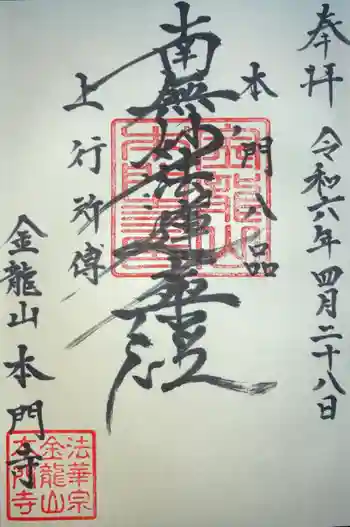 奉拝
令和六年四月二十八日
本門八品
南無妙法蓮華経
上行所傳
金龍山 本門寺
法華宗
金龍山
本門寺